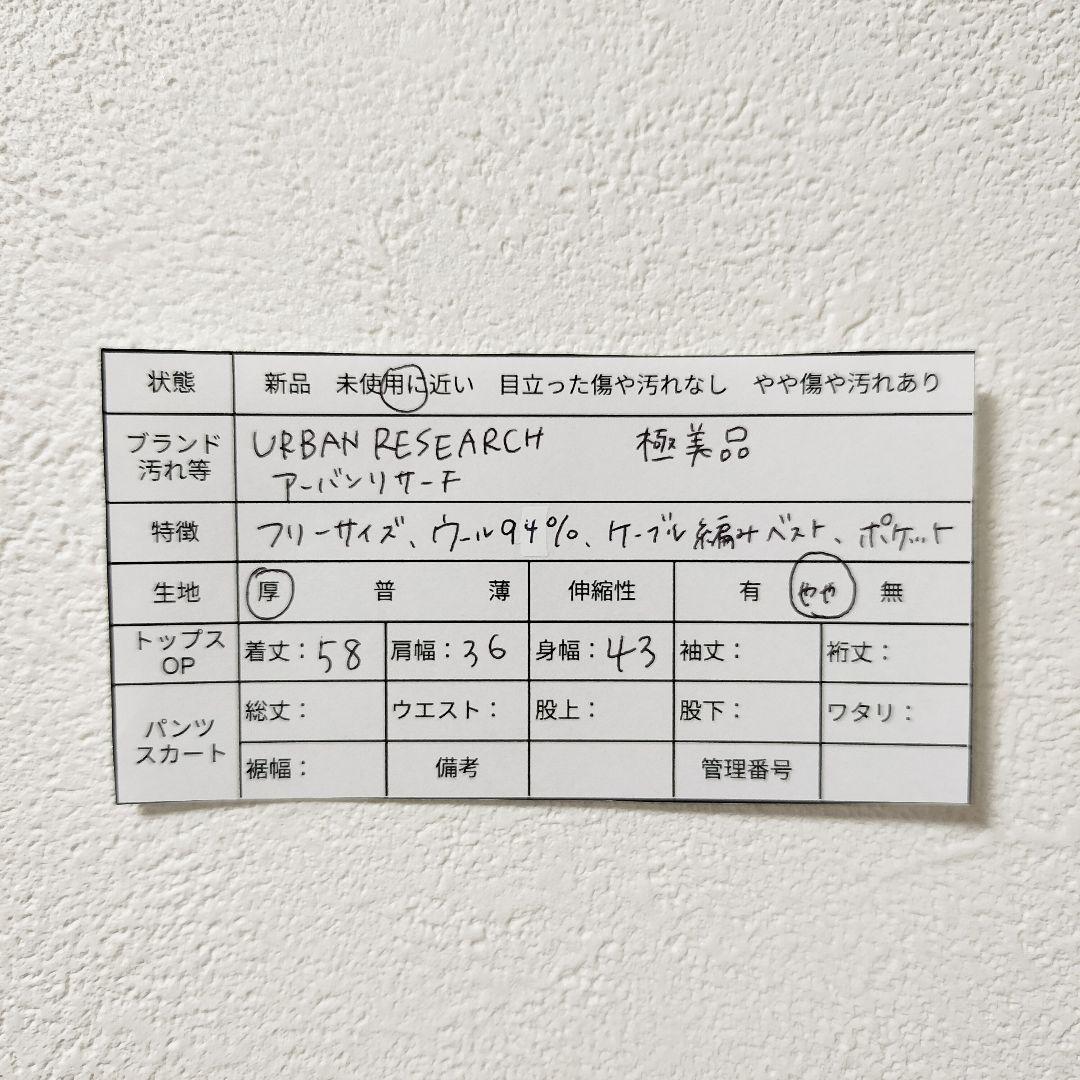 状態 新品 未使用に近い 目立った傷や汚れなし やや傷や汚れあり
ブランド汚れ等 URBAN RESEARCH 極美品
アーバンリサーチ
特徴 フリーサイズ、ウール94%、ケーブル編みベスト、ポケット
生地 厚 普 薄 伸縮性 有 やや 無
トップス OP 着丈：58 肩幅：36 身幅：43 袖丈： 裄丈：
パンツ スカート 総丈： ウエスト： 股上： 股下： ワタリ：
裾幅： 備考 管理番号